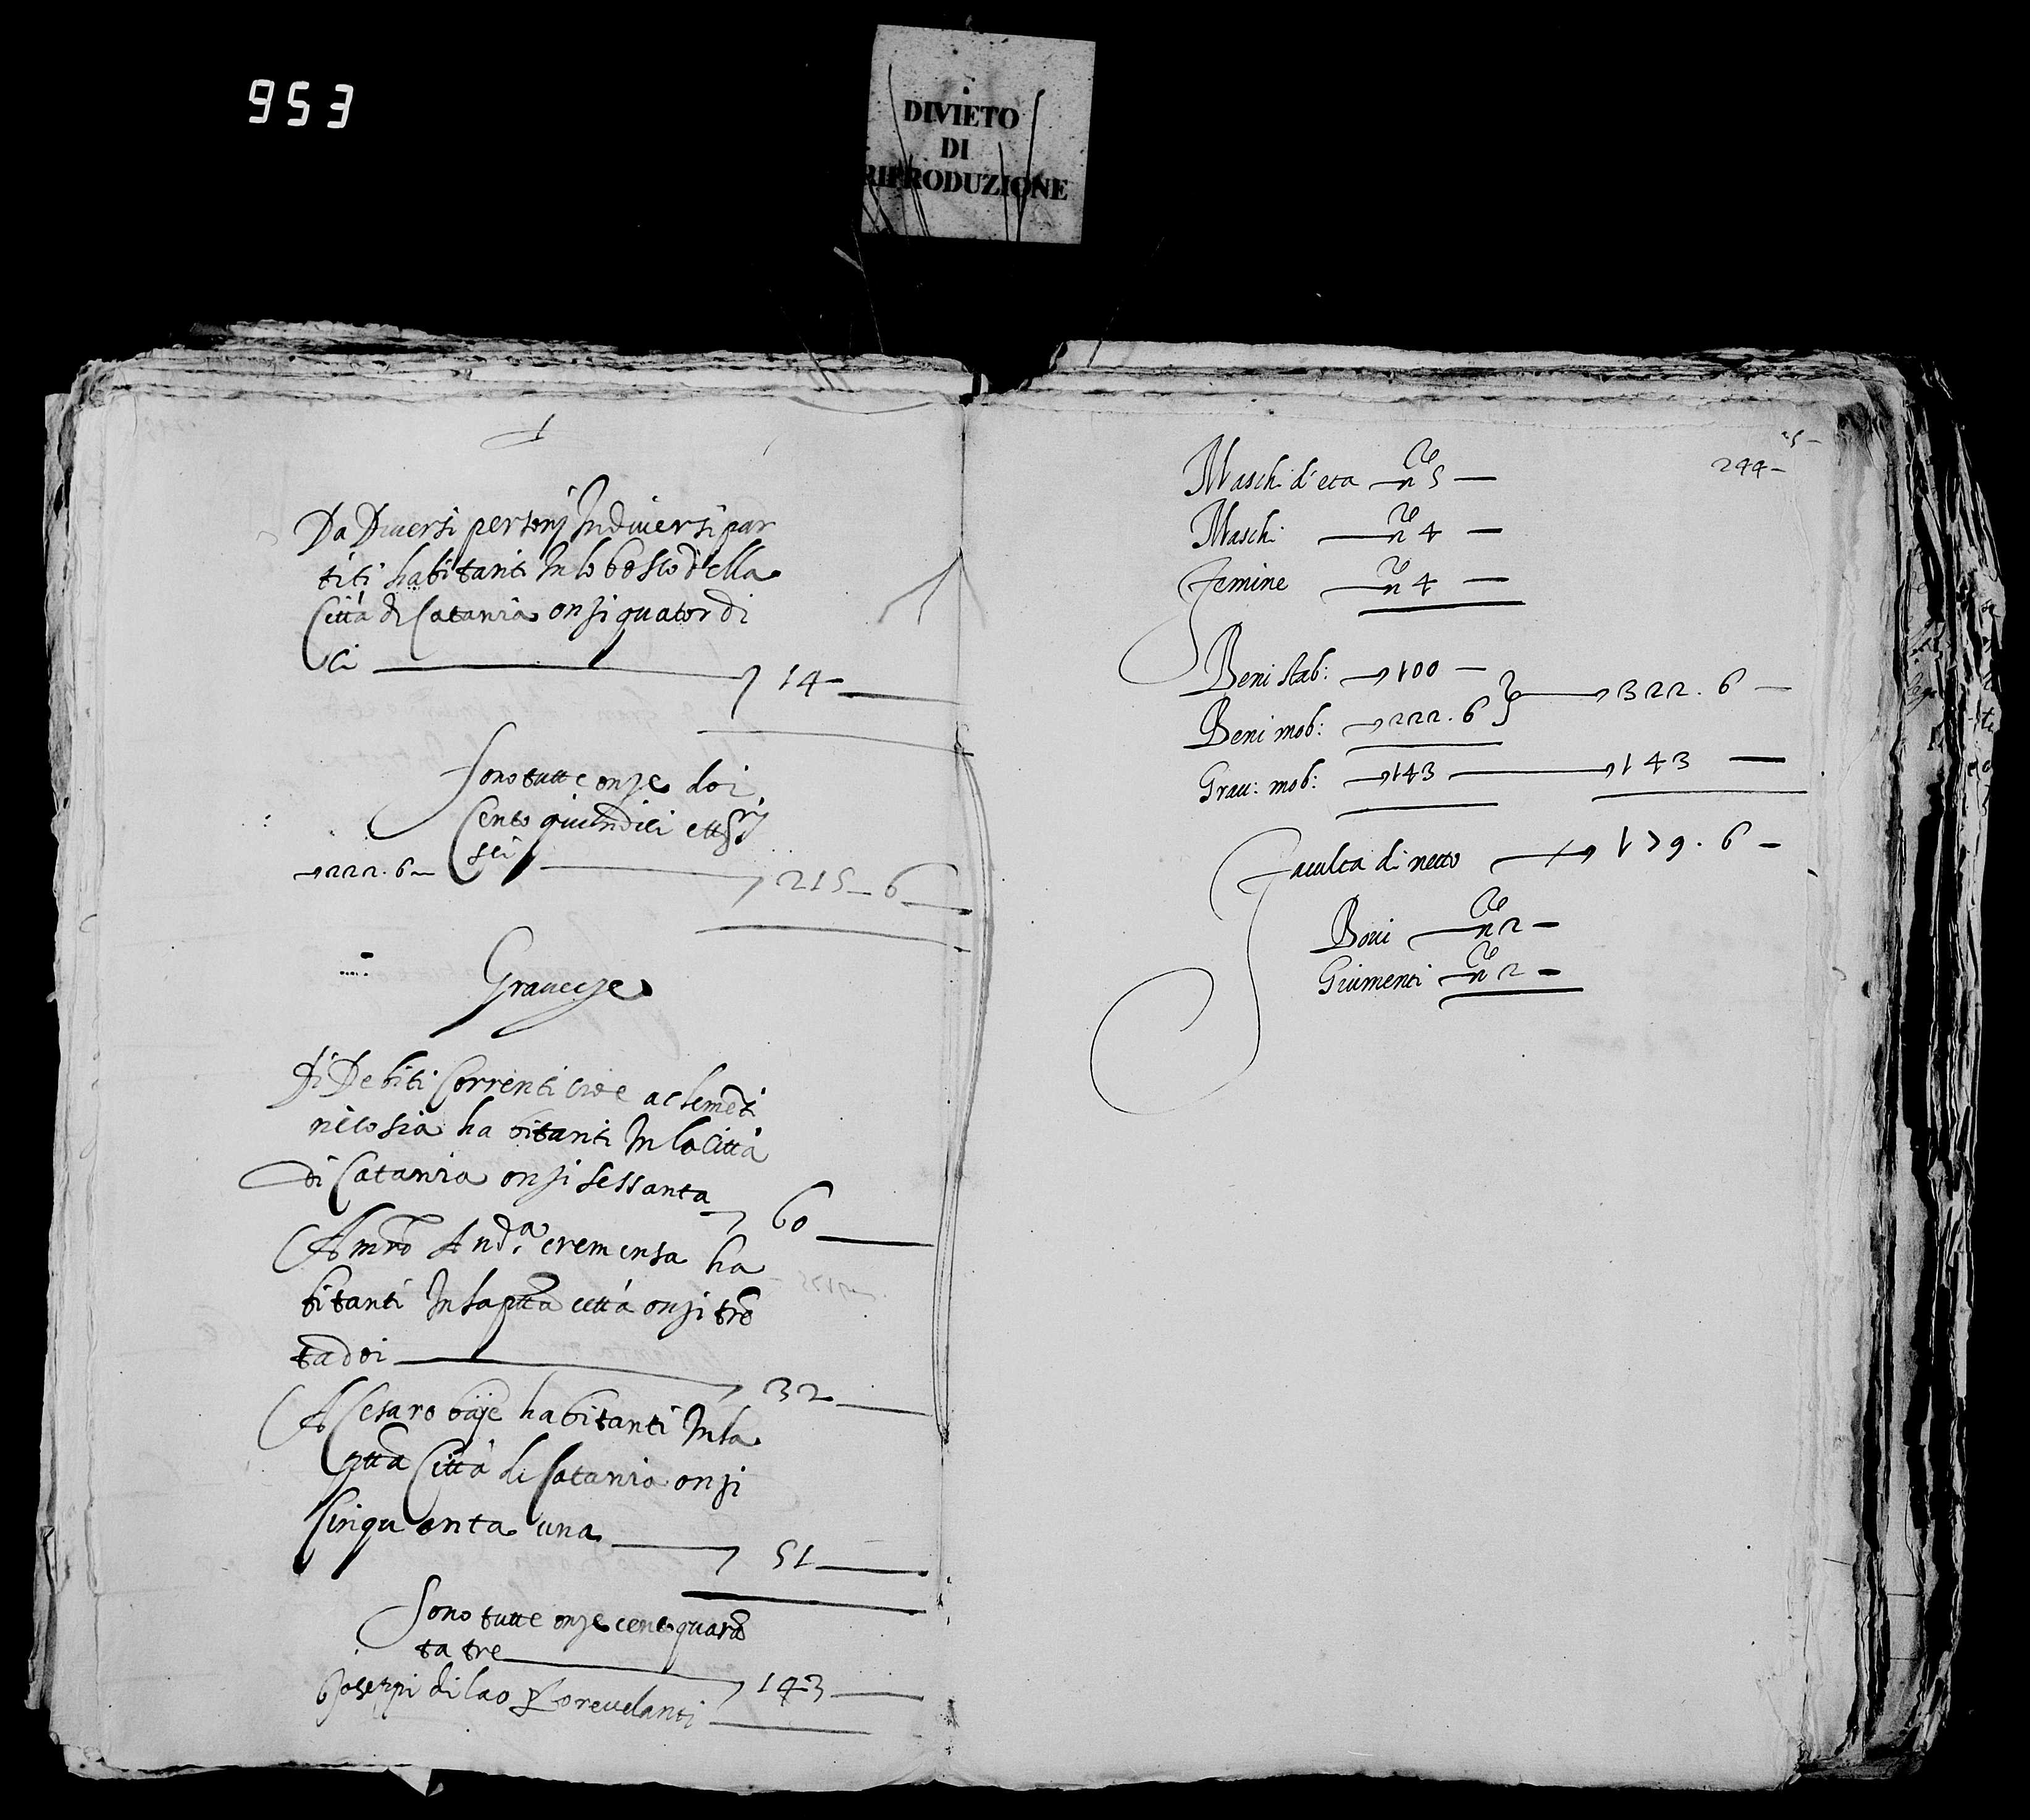 953
DIVIETO
DI
RIPRODUZIONE
Da Diversi personi In diversi par
titi habitanti In lo bosco della
Città di Catania onsi quatordi
ci 14
Sono tutte onze doi
Cento quindici et grj
sei 215 6
222. 6
Graveze
Di Debiti Correnti cioè a clemeti
nicosia habitanti In la Città
di Catania onsi sessanta 60
A mro And.a cremensa ha
bitanti In la ptta città onsi tre
ta doi 32
A Cesaro habitanti In la
ptta Città di Catania onsi
Cinquanta una 51
Sono tutte onze cento quara
ta tre 143
Joseppi di lao revelanti
244
Maschi d'eta n 5
Maschi n 4
Femine n 4
Beni stab: 100
Beni mob: 222. 6 322. 6
Grav: mob: 143 143
Faculta di netto 179. 6
Bovi n 2
Giumenti n 2